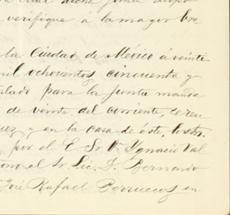 verifique a la mayor bre
la Ciudad de México á veinte
mil ochocientos cincuenta y
para la junta
de veinte del corriente,
y en la casa de éste,
por el E. Sr. D. Ignacio
al Sr. Lic. D. Bernardo
José Rafael Berruecos en